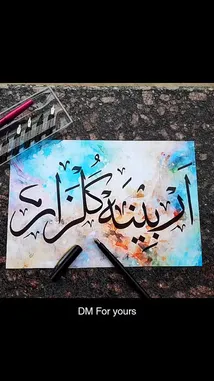 اَربِينَه كُلزَار
DM For yours